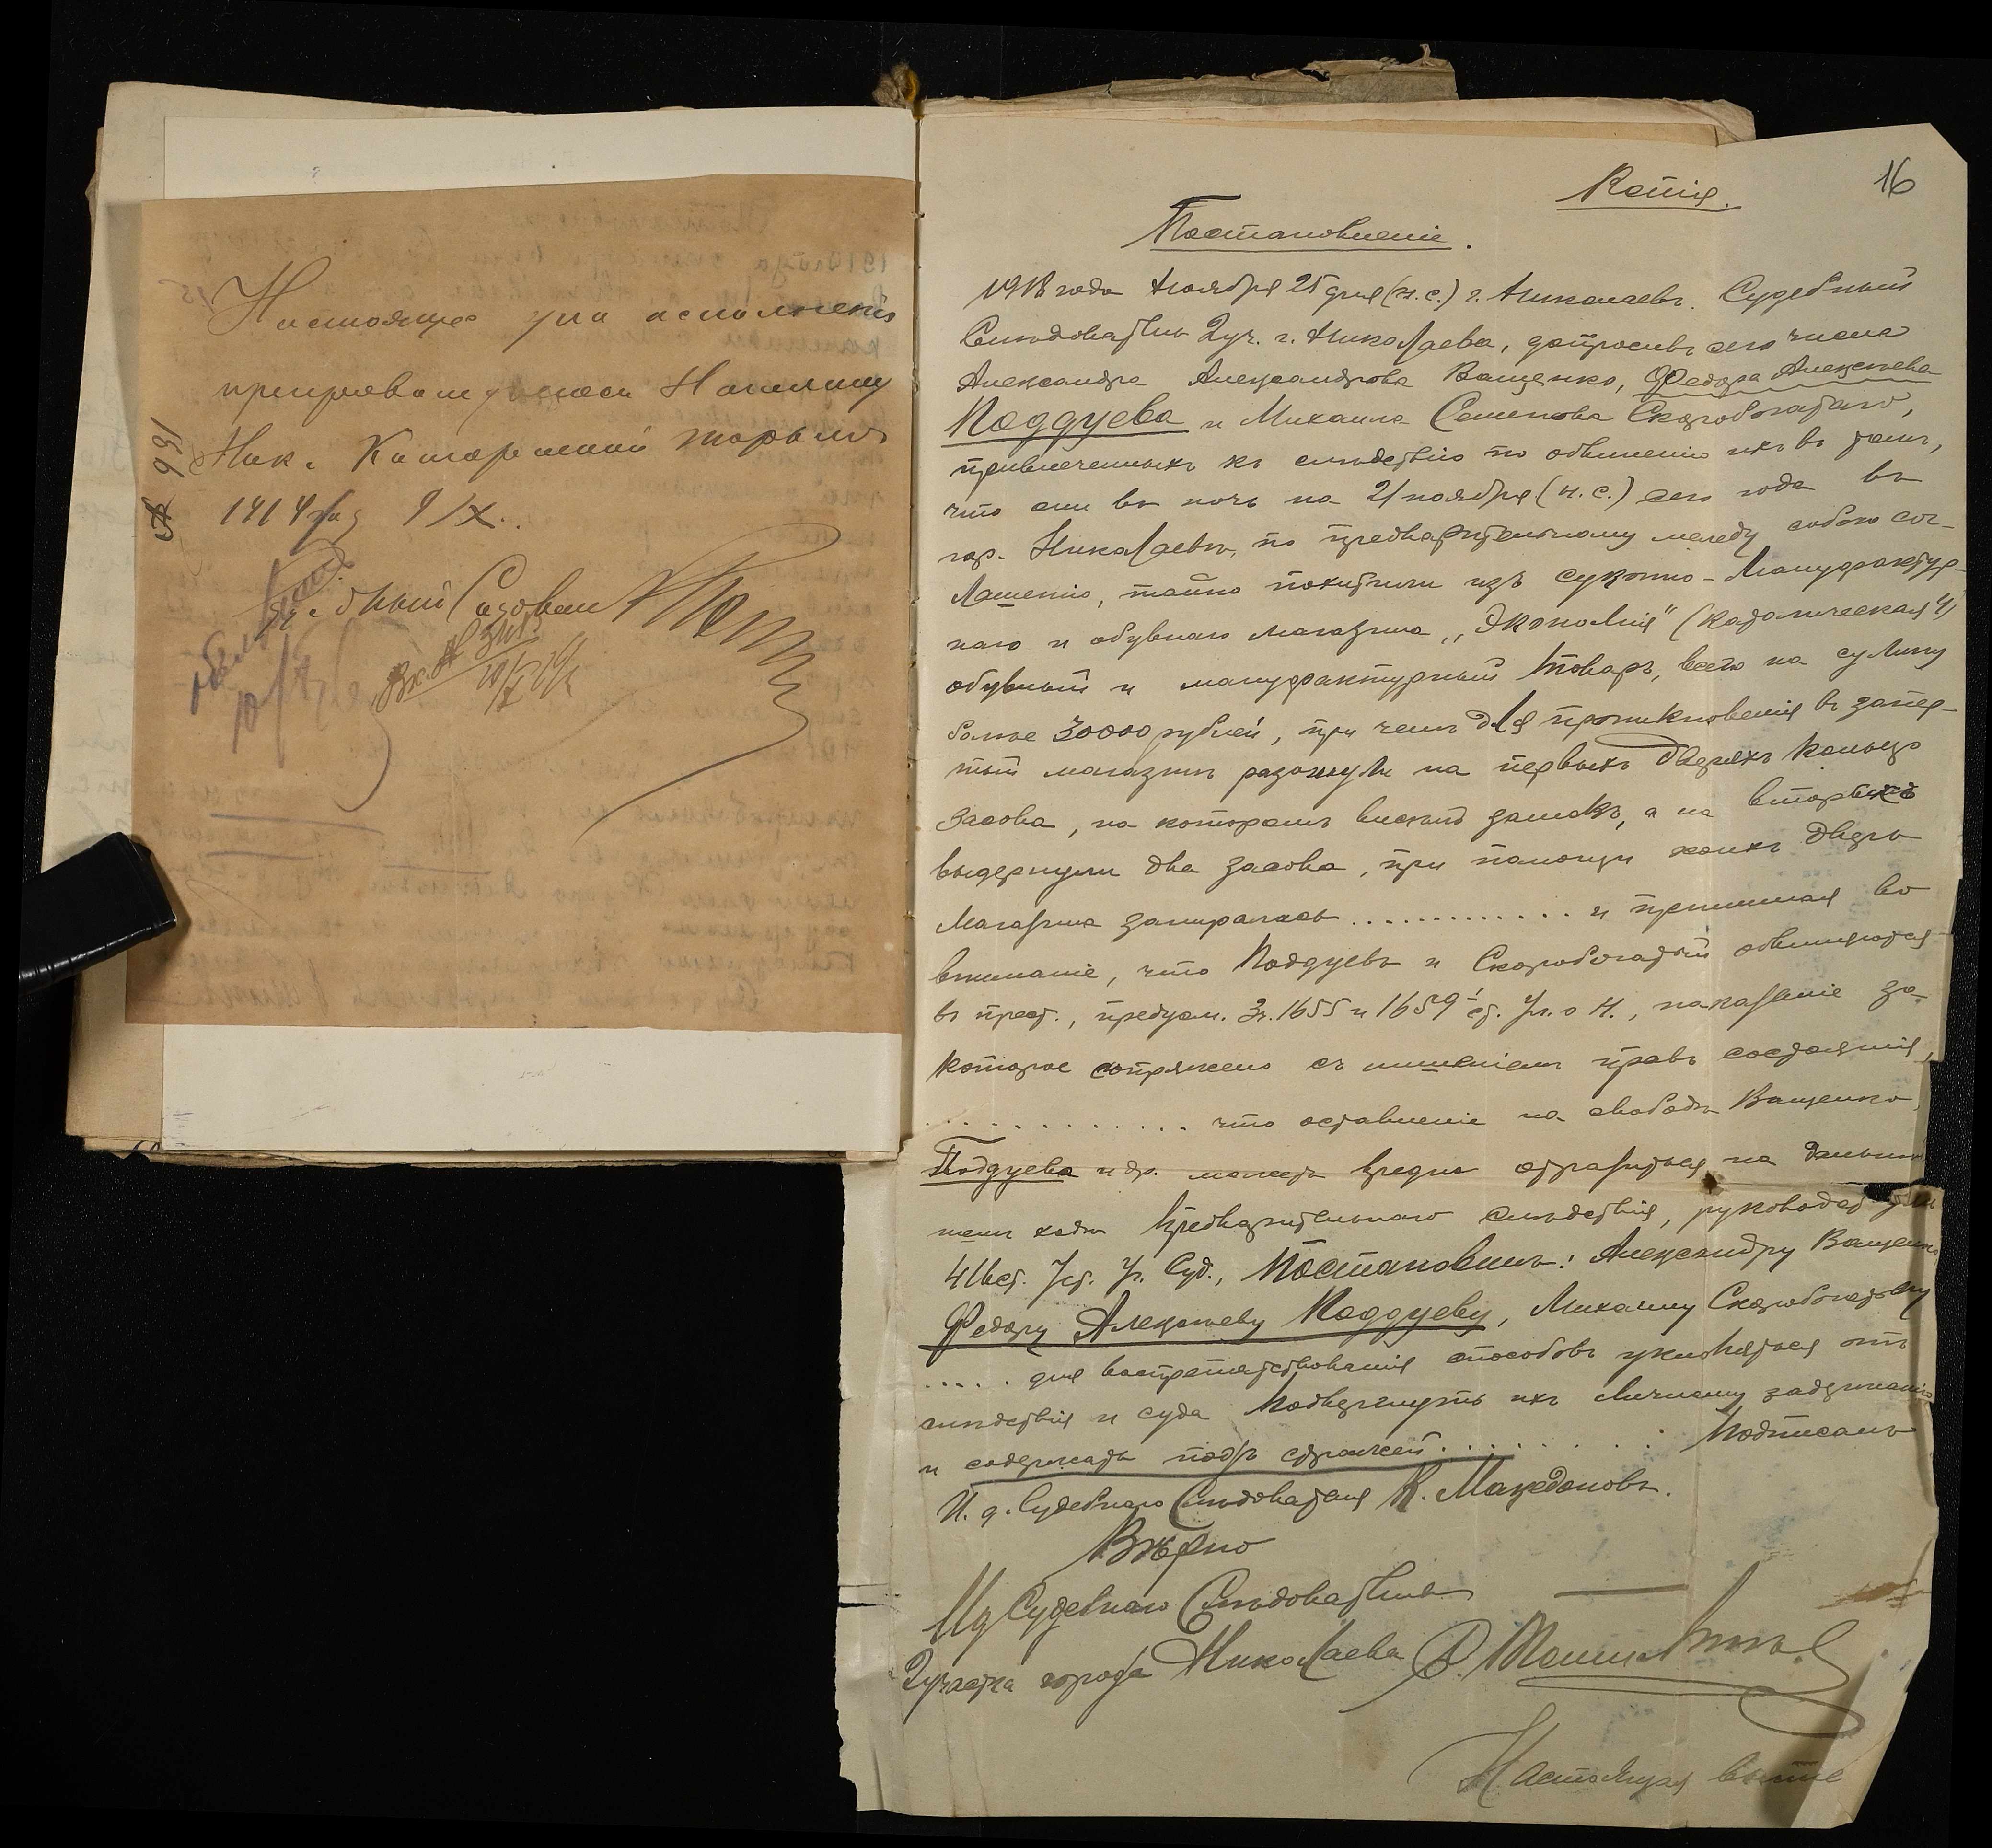 Настоящее для исполненія
препровождается Начальнику
Ник. Каторжной тюрьмы
1919 года 9/X.
№ 931
Судебный Следователь
Вх. № 3413
10/X 19 г.
16
Копія.
Постановленіе.
1918 года Ноября 25 дня (н.с.) г. Николаевъ. Судебный
Слѣдователь 2 уч. г. Николаева, допросивъ сего числа
Александра Александрова Ващенко, Федора Алексѣева
Поддуева и Михаила Семенова Скоробогатаго,
привлеченныхъ къ слѣдствію по обвиненію ихъ въ томъ,
что они въ ночь на 21 ноября (н.с.) сего года въ
гор. Николаевѣ, по предварительному между собою сог-
лашенію, тайно похитили изъ суконно-мануфактур-
наго и обувнаго магазина „Экономія" (Католическая 4)
обувный и мануфактурный товаръ, всего на сумму
болѣе 30000 рублей, при чемъ для проникновенія въ запер-
тый магазинъ разогнули на первыхъ дверяхъ кольцо
засова, на которомъ висѣлъ замокъ, а на вторыхъ
выдернули два засова, при помощи коихъ дверь
магазина запиралась . . . . . . . . . . . . . и принимая во
вниманіе, что Поддуевъ и Скоробогатый обвиняются
въ прест., предусм. 3 ч. 1655 и 1659¹ ст. Ул. о Н., наказаніе за
которое сопряжено съ лишеніемъ правъ состоянія,
. . . . . . . . . . . . . что оставленіе на свободѣ Ващенко,
Поддуева и др. можетъ вредно отразиться на дальнѣй
шемъ ходѣ предварительнаго слѣдствія, руководствуясь
416 ст. Уст. Уг. Суд., Постановилъ: Александру Ващенко
Федору Алексѣеву Поддуеву, Михаилу Скоробогатому
. . . . . для воспрепятствованія способовъ уклоняться отъ
слѣдствія и суда подвергнуть ихъ личному задержанію
и содержать подъ стражей . . . . . . . . Подписалъ
И. д. Судебнаго Слѣдователя К. Македоновъ.
Вѣрно
Ид Судебнаго Слѣдователя
2 участка города Николаева
Настоящая копія